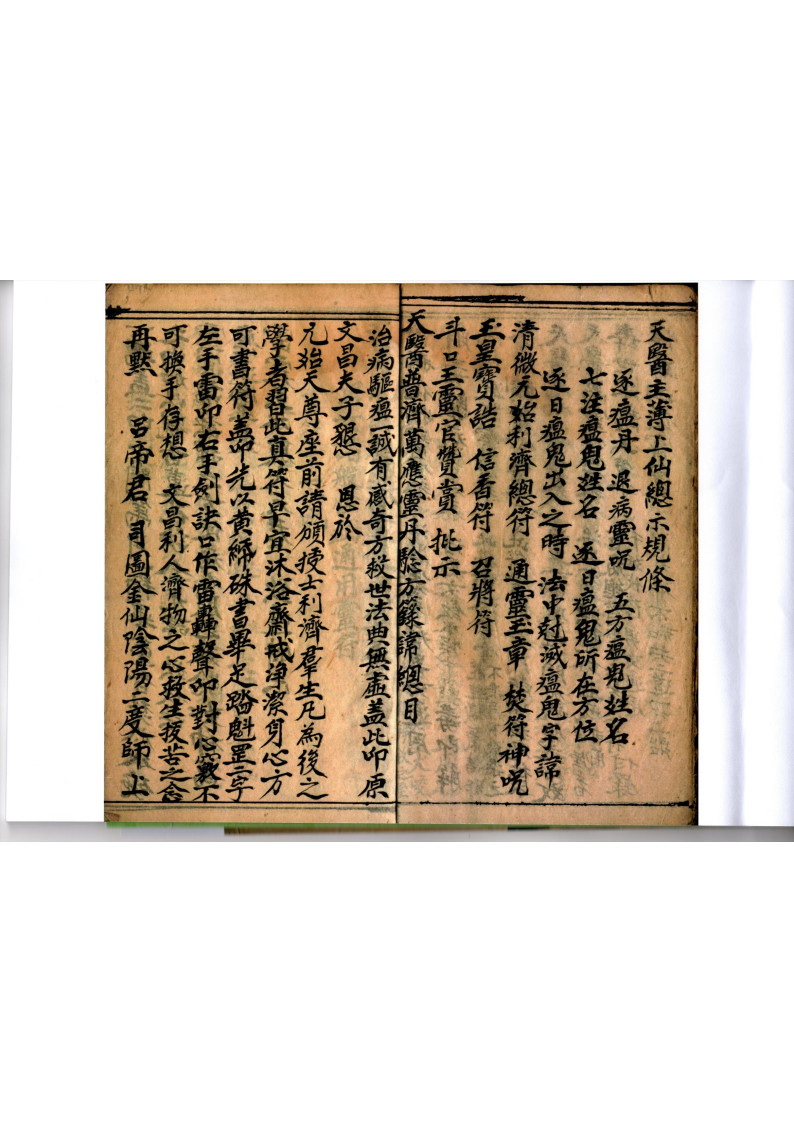 天醫主薄上仙總示規條
逐瘟丹 退病靈呪 五方瘟鬼姓名
七注瘟鬼姓名 逐日瘟鬼所在方位
逐日瘟鬼出入之時 法中尅滅瘟鬼字諱
清微元始利濟總符 通靈玉章 焚符神呪
玉皇寶誥 信香符 召將符
斗口王靈官贊賞 批示
天醫普濟萬應靈丹騐方籙諱總目
治病驅瘟一誠有感奇方救世法典無虛盖此印原
文昌夫子懇 恩於
元始天尊座前請頒授士利濟羣生凡為後之
學者習此真符早宜沐浴齋戒淨潔身心方
可書符盖印先以黃締硃書畢足踏魁罡二字
左手雷印右手劍訣口作雷轟聲印對心窩不
可換手存想 文昌利人濟物之心救生援苦之念
再黙 呂帝君 司圖金仙陰陽二度師上